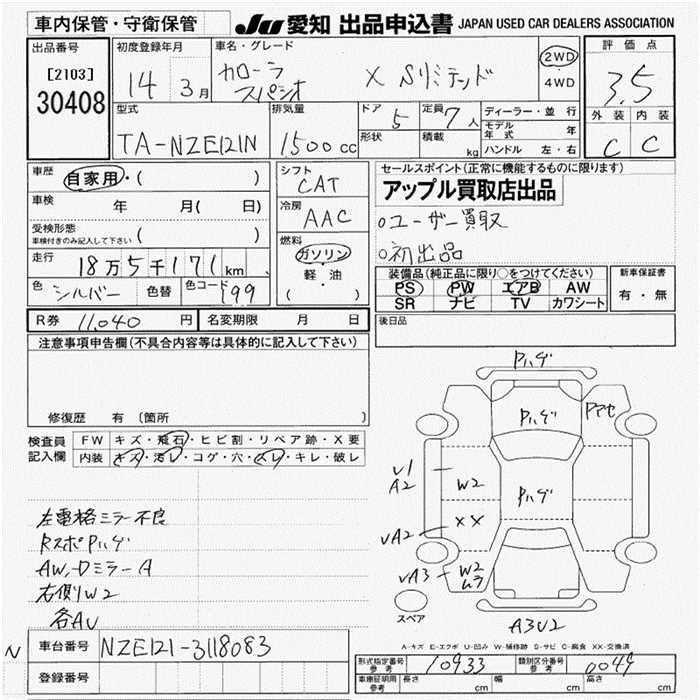 車内保管・守衛保管
JU 愛知 出品申込書 JAPAN USED CAR DEALERS ASSOCIATION
出品番号
[2103]
30408
初度登録年月
14 3月
車名・グレード
カローラ
スパシオ X Sリミテッド
2WD
4WD
評価点
3.5
外装 内装
C C
型式
TA-NZE121N
排気量
1500cc
ドア 5
形状
定員 7人
積載 kg
ディーラー・並行
モデル年式 年
ハンドル 左・右
車歴 自家用・( )
車検 年 月( 日)
受検形態
車検付きのみ記入して下さい ( )
走行
18万5千171km
色 シルバー 色替 色コード 199
シフト
CAT
冷房
AAC
燃料
ガソリン
・
軽・油
( )
セールスポイント(正常に機能するものに限ります)
アップル買取店出品
○ユーザー買取
○初出品
装備品(純正品に限り○をつけてください)
PS PW エアB AW
SR ナビ TV カワシート
新車保証書
有・無
R券 11,040 円 名変期限 月 日
後日品
注意事項申告欄(不具合内容等は具体的に記入して下さい)
修復歴 有〔箇所 〕
検査員
記入欄
FW キズ・飛石・ヒビ割・リペア跡・X要
内装 キズ・汚レ・コゲ・穴・スレ・キレ・破レ
左電格ミラー不良
RスポPハゲ
AW,Dミラー A
右側W2
各AU
Pハゲ
Pハゲ
Pアセ
U1
A2
W2
Pハゲ
XX
UA2
UA3
W2
ムラ
スペア
A3U2
A-キズ E-エクボ U-凹み W-補修跡 S-サビ C-腐食 XX-交換済
N
車台番号 NZE121-3118083
登録番号
形式指定番号
参考
10933
類別区分番号
参考
0049
車庫証明用
参考
長さ cm 幅 cm 高さ cm